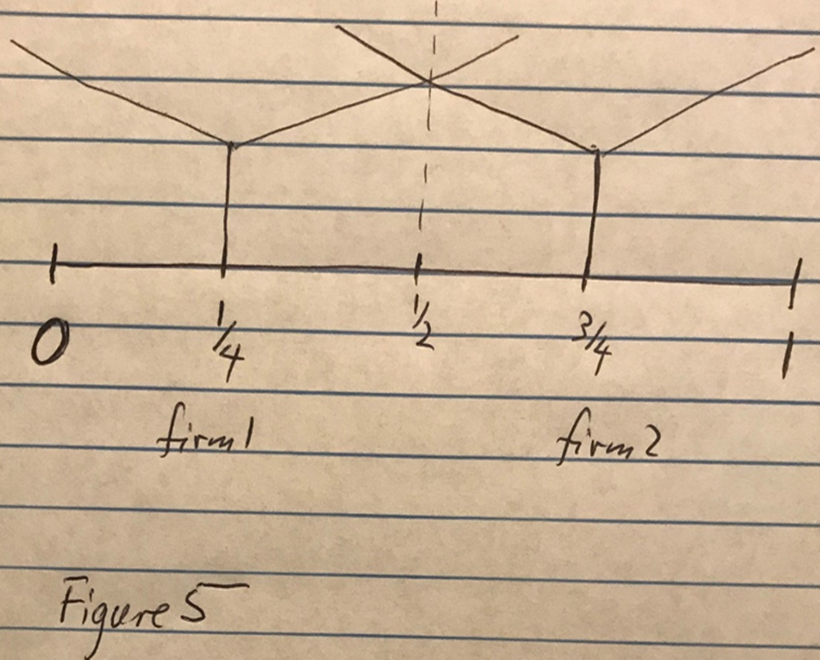 0 1/4 1/2 3/4 1
firm1 firm2
Figure 5